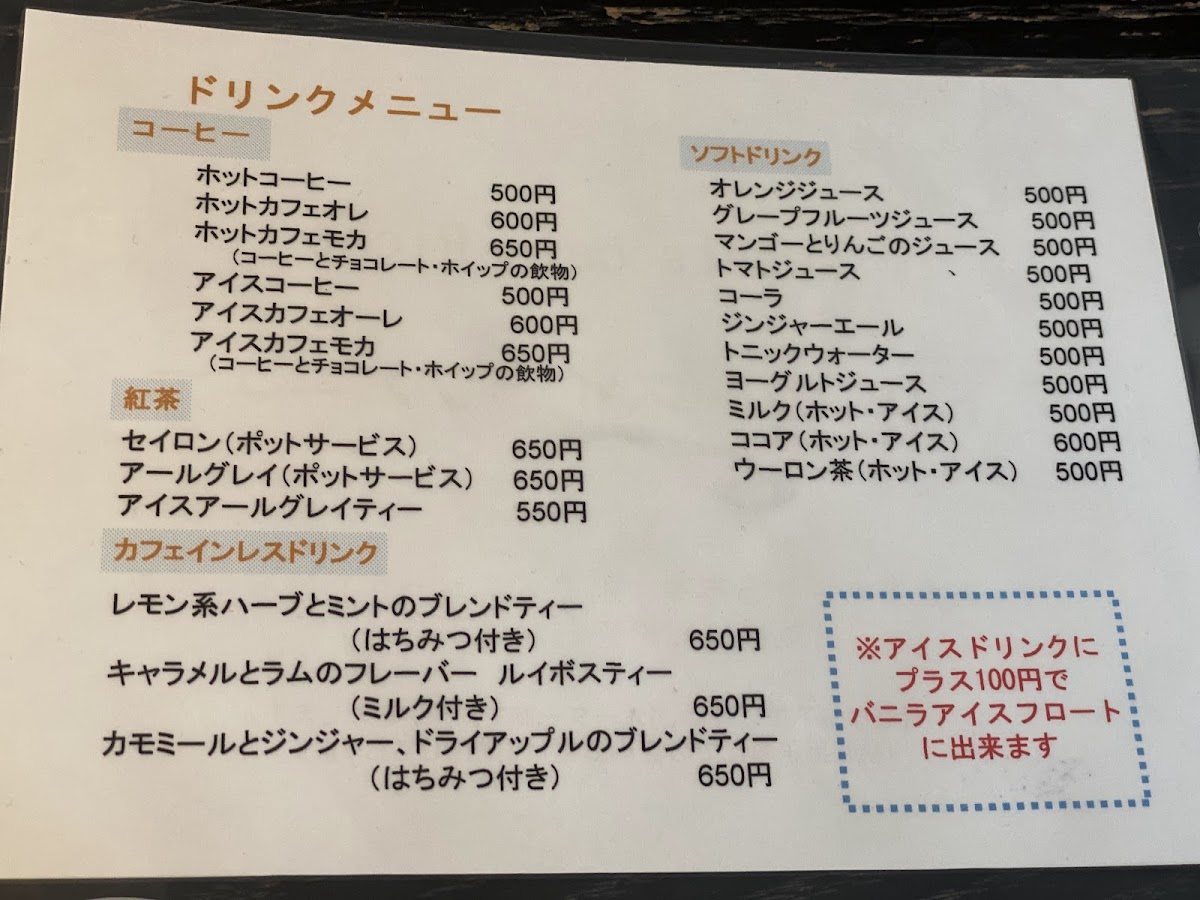 ドリンクメニュー
コーヒー
ホットコーヒー 500円
ホットカフェオレ 600円
ホットカフェモカ 650円
(コーヒーとチョコレート・ホイップの飲物)
アイスコーヒー 500円
アイスカフェオーレ 600円
アイスカフェモカ 650円
(コーヒーとチョコレート・ホイップの飲物)
紅茶
セイロン(ポットサービス) 650円
アールグレイ(ポットサービス) 650円
アイスアールグレイティー 550円
カフェインレスドリンク
レモン系ハーブとミントのブレンドティー
(はちみつ付き) 650円
キャラメルとラムのフレーバー ルイボスティー
(ミルク付き) 650円
カモミールとジンジャー、ドライアップルのブレンドティー
(はちみつ付き) 650円
ソフトドリンク
オレンジジュース 500円
グレープフルーツジュース 500円
マンゴーとりんごのジュース 500円
トマトジュース 、 500円
コーラ 500円
ジンジャーエール 500円
トニックウォーター 500円
ヨーグルトジュース 500円
ミルク(ホット・アイス) 500円
ココア(ホット・アイス) 600円
ウーロン茶(ホット・アイス) 500円
※アイスドリンクに
プラス100円で
バニラアイスフロート
に出来ます